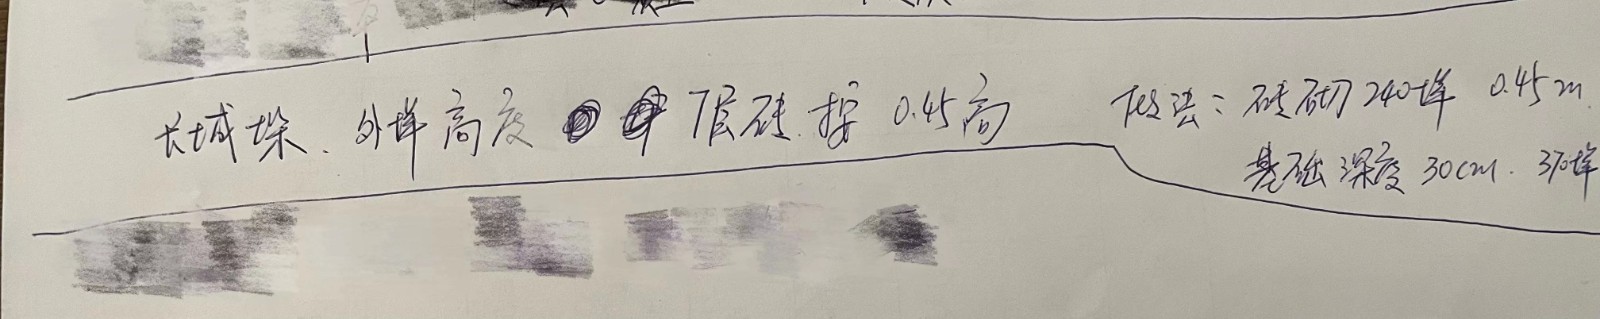 长城垛、外墙高度 7层砖.按 0.45高
做法:砖砌240墙 0.45m.
基础深度30cm. 370墙